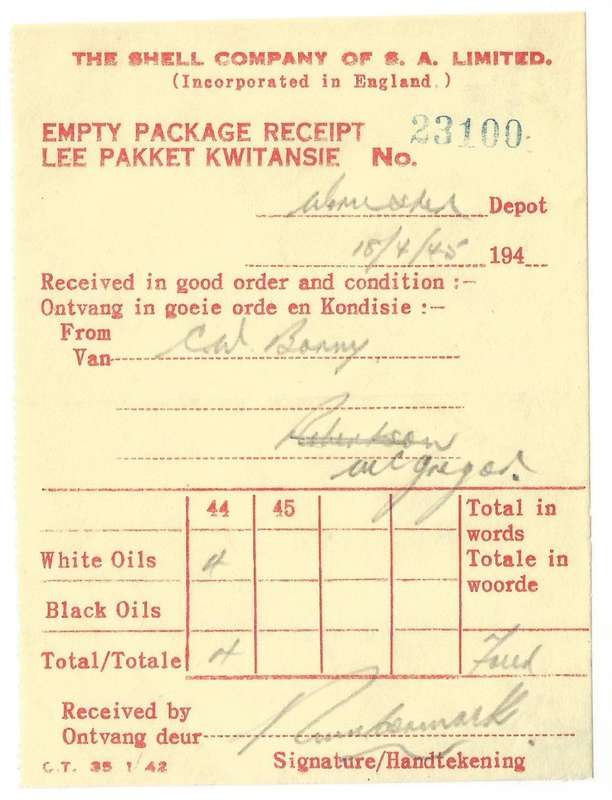 THE SHELL COMPANY OF S. A. LIMITED.
(Incorporated in England.)
EMPTY PACKAGE RECEIPT
LEE PAKKET KWITANSIE No. 23100
Depot
18/4/45 194
Received in good order and condition :—
Ontvang in goeie orde en Kondisie :—
From
Van C.W. Bonny
Robertson
McGregor.
44 45 Total in words
White Oils 4 Totale in woorde
Black Oils
Total/Totale 4 Four
Received by
Ontvang deur
Signature/Handtekening
C.T. 35 1/42